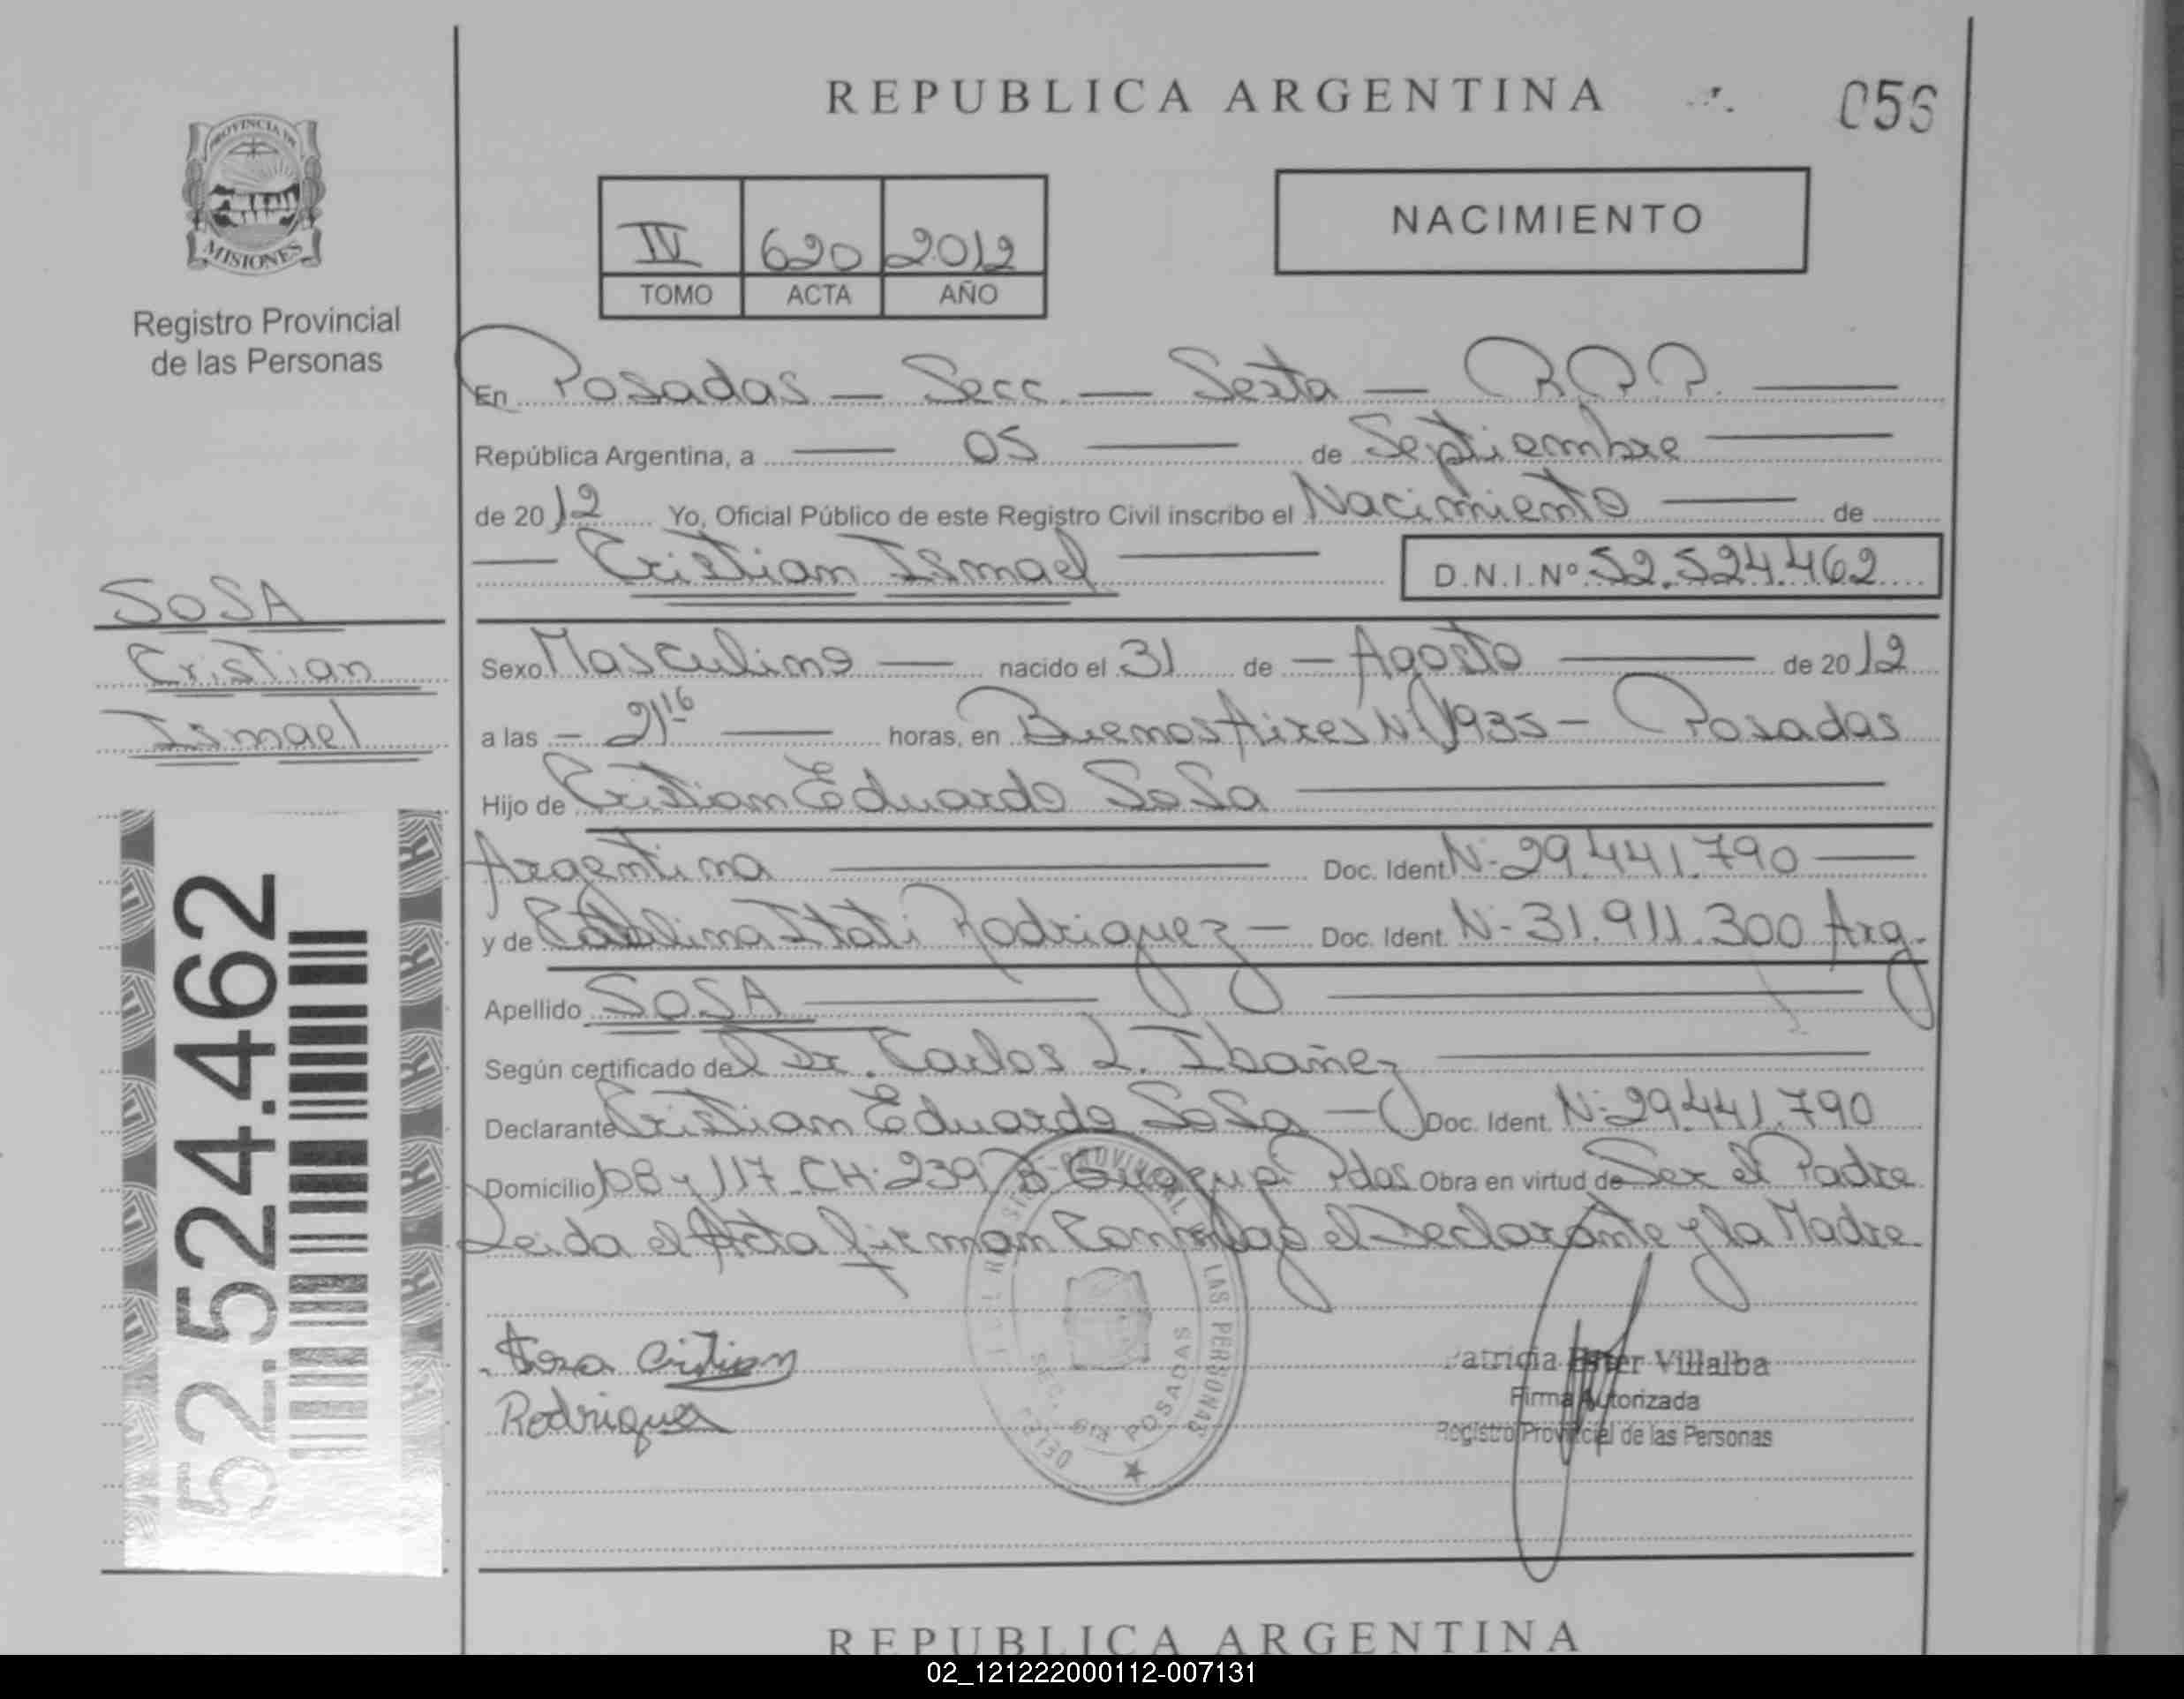 REPUBLICA ARGENTINA
056
PROVINCIA DE
MISIONES
Registro Provincial
de las Personas
IV 620 2012
TOMO ACTA AÑO
NACIMIENTO
En Posadas — Secc. — Sexta — R.P.P. —
República Argentina, a — 05 — de Septiembre —
de 2012 Yo, Oficial Público de este Registro Civil inscribo el Nacimiento — de
— Cristian Ismael — D.N.I. Nº 52.524.462
SOSA
Cristian
Ismael
Sexo Masculino — nacido el 31 de — Agosto — de 2012
a las — 21 16 — horas, en Buenos Aires Nº 1935 — Posadas
Hijo de Cristian Eduardo Sosa —
Argentina — Doc. Ident. Nº 29.441.790 —
y de Catalina Itati Rodriguez — Doc. Ident. Nº 31.911.300 Arg.
Apellido SOSA —
Según certificado del Dr. Carlos L. Ibañez —
Declarante Cristian Eduardo Sosa — Doc. Ident. Nº 29.441.790
Domicilio 108 y 117 CH. 239 Bº Guazupi Pdas. Obra en virtud de Ser el Padre
Leida el Acta firman Conmigo el Declarante y la Madre
52.524.462
Sosa Cristian
Rodriguez
LAS PERSONAS
POSADAS
Patricia Ester Villalba
Firma Autorizada
Registro Provincial de las Personas
REPUBLICA ARGENTINA
02_121222000112-007131